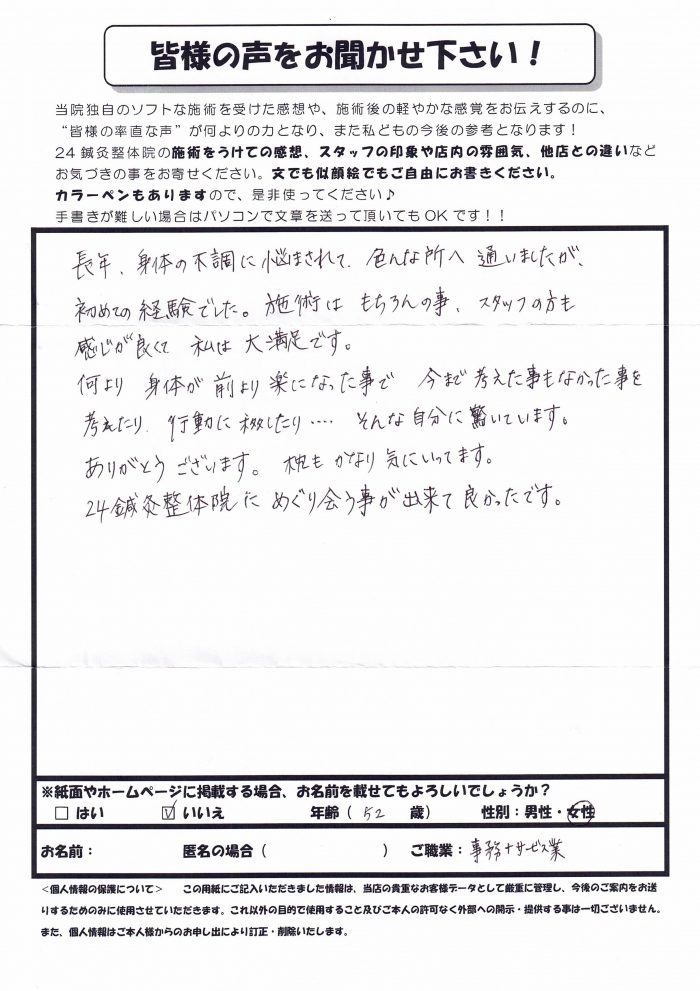 皆様の声をお聞かせ下さい！
当院独自のソフトな施術を受けた感想や、施術後の軽やかな感覚をお伝えするのに、
“皆様の率直な声”が何よりの力となり、また私どもの今後の参考となります！
24鍼灸整体院の施術をうけての感想、スタッフの印象や店内の雰囲気、他店との違いなど
お気づきの事をお寄せください。文でも似顔絵でもご自由にお書きください。
カラーペンもありますので、是非使ってください♪
手書きが難しい場合はパソコンで文章を送って頂いてもOKです！！
長年、身体の不調に悩まされて、色んな所へ 通いましたが、
初めての経験でした。施術は もちろんの事、スタッフの方も
感じが良くて 私は 大満足です。
何より 身体が 前より 楽になった事で 今まで 考えた事もなかった事を
考えたり、行動に移したり‥‥ そんな自分に 驚いています。
ありがとう ございます。 枕も かなり 気にいってます。
24鍼灸整体院に めぐり会う事が 出来て 良かったです。
※紙面やホームページに掲載する場合、お名前を載せてもよろしいでしょうか？
□ はい ☑ いいえ 年齢（ 52 歳） 性別：男性・女性
お名前： 匿名の場合（ ） ご職業：事務+サービス業
<個人情報の保護について> この用紙にご記入いただきました情報は、当店の貴重なお客様データとして厳重に管理し、今後のご案内をお送
りするためのみに使用させていただきます。これ以外の目的で使用すること及びご本人の許可なく外部への開示・提供する事は一切ございません。
また、個人情報はご本人様からのお申し出により訂正・削除いたします。